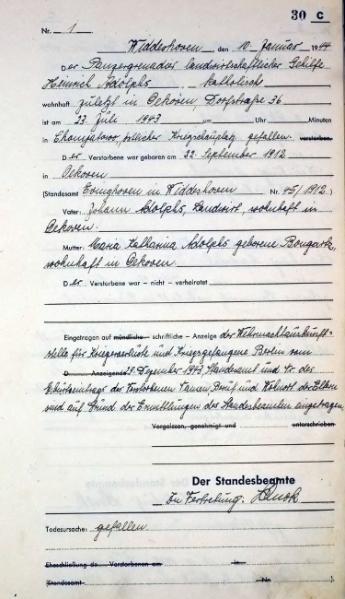 30 C
Nr. 1
Widdeshoven, den 10. Januar 1944
Der Panzergrenadier landwirtschaftlicher Gehilfe
Heinrich Adolphs, katholisch
wohnhaft zuletzt in Oekoven, Dorfstraße 36
ist am 23. Juli 1943 um Uhr Minuten
in östlicher Kriegsschauplatz gefallen. verstorben.
Der Verstorbene war geboren am 22. September 1912
in Oekoven
(Standesamt Evinghoven in Widdeshoven Nr. 45/1912)
Vater: Johann Adolphs, Landwirt, wohnhaft in
Oekoven.
Mutter: Maria Katharina Adolphs geborene Bongartz,
wohnhaft in Oekoven.
Der Verstorbene war – nicht – verheiratet
Eingetragen auf mündliche – schriftliche – Anzeige der Wehrmachtauskunft-
stelle für Kriegsverluste und Kriegsgefangene Berlin vom
D Anzeigende 29. Dezember 1943. Standesamt und Nr. des
Geburtseintrags des Verstorbenen, Namen, Beruf und Wohnort der Eltern
sind auf Grund der Ermittlungen des Standesbeamten eingetragen.
Vorgelesen, genehmigt und unterschrieben
Der Standesbeamte
In Vertretung:
Todesursache: gefallen
Eheschließung de Verstorbenen am in
(Standesamt Nr. )